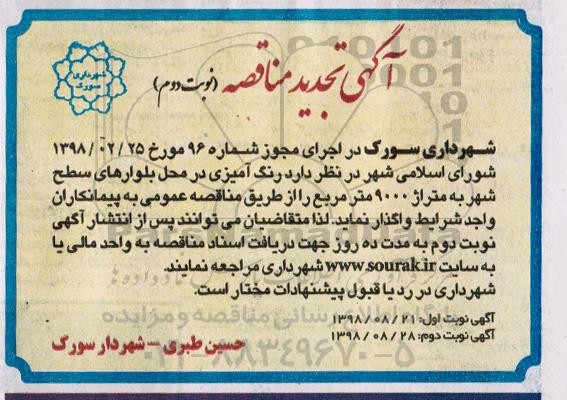 شهرداری
سورک
آگهی تجدید مناقصه (نوبت دوم)
شهرداری سورک در اجرای مجوز شماره ۹۶ مورخ ۱۳۹۸/۰۲/۲۵
شورای اسلامی شهر در نظر دارد رنگ آمیزی در محل بلوارهای سطح
شهر به متراژ ۹۰۰۰ متر مربع را از طریق مناقصه عمومی به پیمانکاران
واجد شرایط واگذار نماید. لذا متقاضیان می توانند پس از انتشار آگهی
نوبت دوم به مدت ده روز جهت دریافت اسناد مناقصه به واحد مالی یا
به سایت www.sourak.ir شهرداری مراجعه نمایند.
شهرداری در رد یا قبول پیشنهادات مختار است.
آگهی نوبت اول: ۱۳۹۸/۰۸/۲۱
آگهی نوبت دوم: ۱۳۹۸/۰۸/۲۸
حسین طبری - شهردار سورک
۰۲۱-۸۸۳۴۹۶۷۰-۵